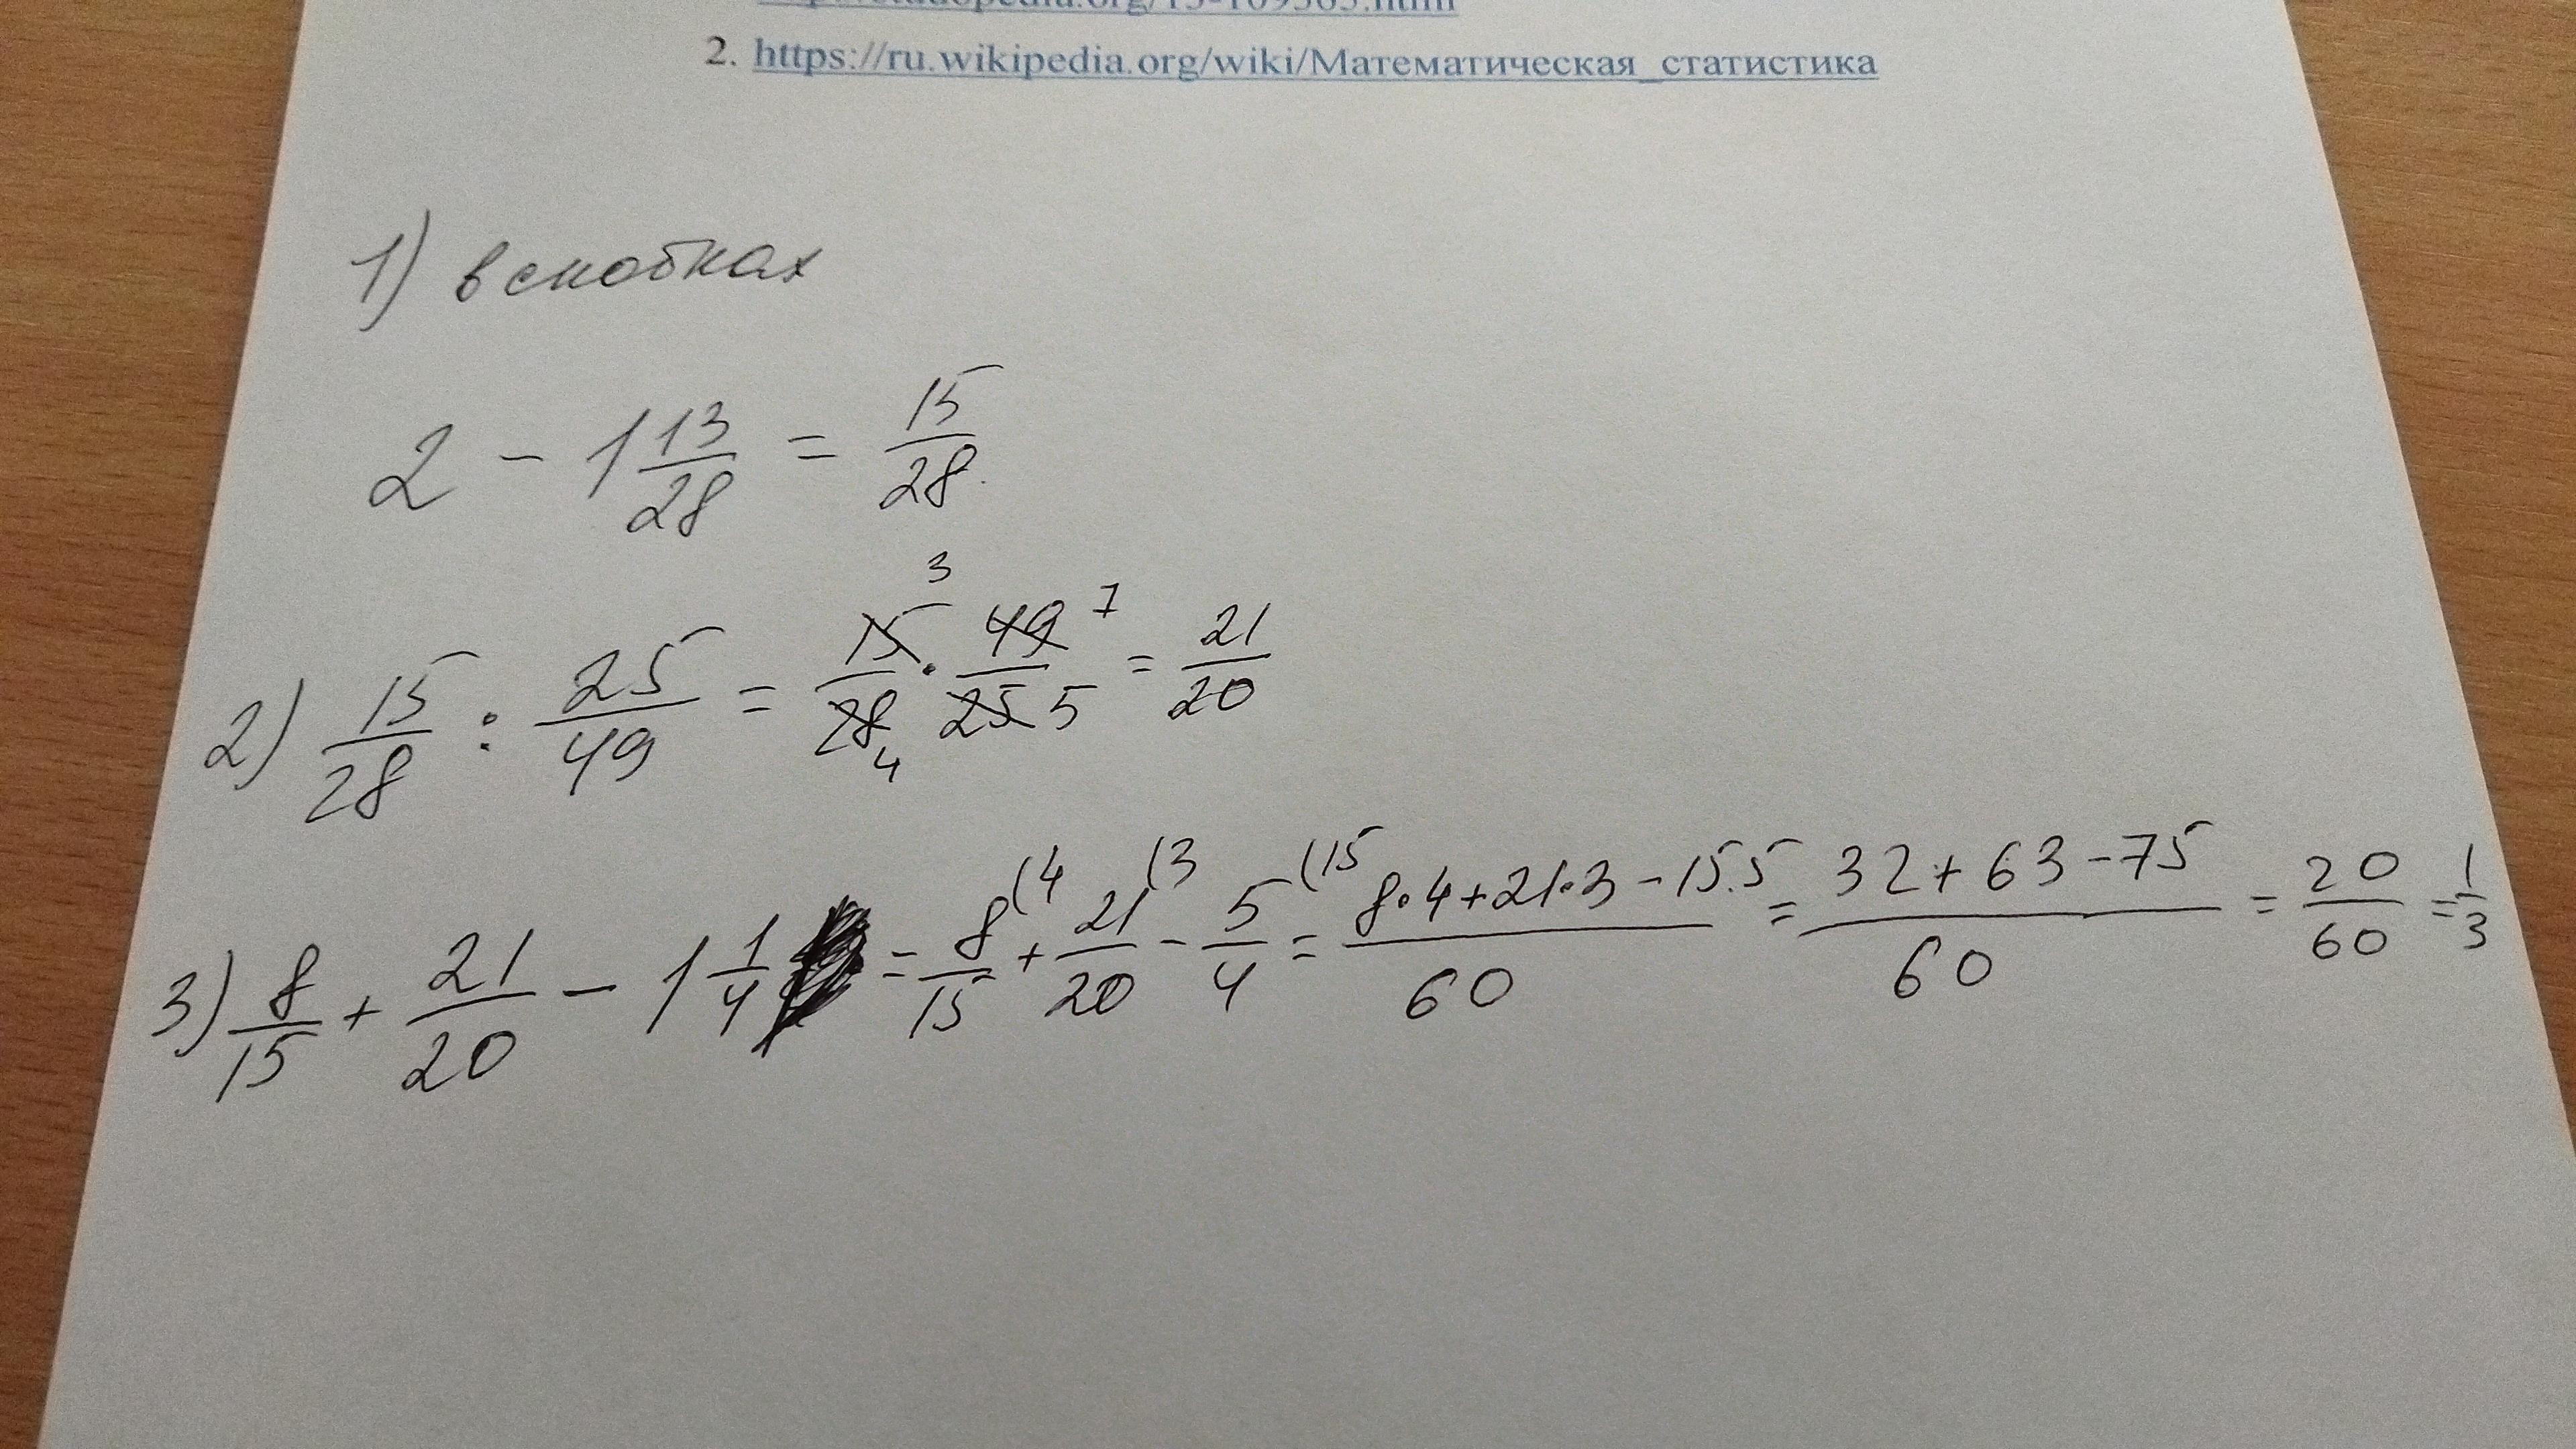 2. https://ru.wikipedia.org/wiki/Математическая_статистика
1) в скобках
2 - 1 13/28 = 15/28
2) 15/28 : 25/49 = 15/28 3 4 · 49/25 7 5 = 21/20
3) 8/15 + 21/20 - 1 1/4 = 8/15 (4 + 21/20 (3 - 5/4 (15 = 8·4+21·3-15·5/60 = 32+63-75/60 = 20/60 = 1/3